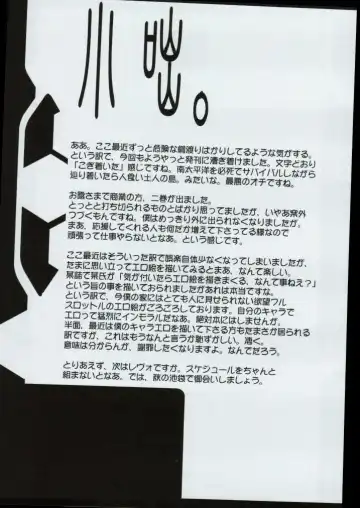 小出。
ああ。ここ最近ずっと危険な綱渡りばかりしてるような気がする。
という訳で、今回もようやっと発刊に漕ぎ着けました。文字どおり
「こぎ着いた」感じですね。南太平洋を必死でサバイバルしながら
辿り着いたら人食い土人の島。みたいな。最悪のオチですね。
お陰さまで商業の方、二巻が出ました。
とっとと打ち切られるものとばかり思ってましたが、いやあ案外
つづくもんですね。僕はめっきり外に出られなくなりましたが。
まあ、応援してくれる人も何だか増えて下さってる様なので
頑張って仕事やらないとなあ。という感じです。
ここ最近はそういった訳で娯楽自体少なくなってしまいましたが、
たまに思い立ってエロ絵を描いてみるとまあ、なんて楽しい。
某誌で某氏が「気が付いたらエロ絵を描きまくる、なんて事ねぇ?」
という旨の事を描いておられましたがあれは本当ですな。
という訳で、今僕の家にはとても人に見せられない欲望フル
スロットルのエロ絵がごろごろしております。自分のキャラで
エロって猛烈にインモラルだなあ。絶対本にはしませんが。
半面、最近は僕のキャラエロを描いて下さる方もたまさか居られる
訳ですが、これはもうなんと言うか恥ずかしい。凄く。
意味は分からんが、謝罪したくなりますよ。なんでだろう。
とりあえず、次はレヴォですが。スケジュールをちゃんと
組まないとなあ、では、秋の池袋で御会いしましょう。